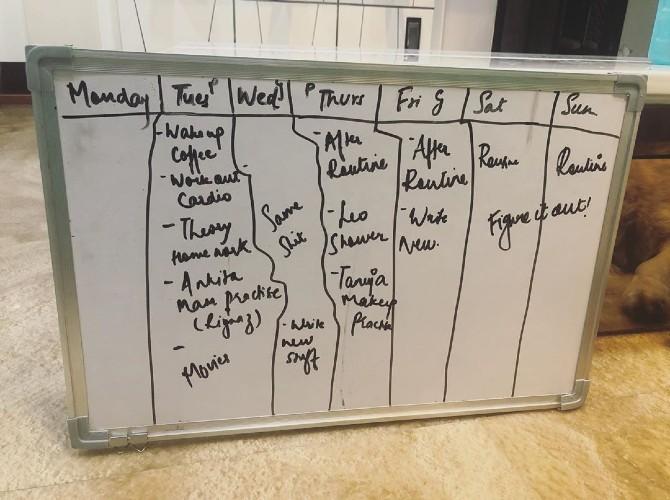 Monday Tues P Wed P Thurs Fri G Sat Sun
- Wake up
Coffee
- Workout
Cardio
- Theory
Home work
- Ankita
Mam practise
- Movies
Same
Shit
- Write
new
stuff
- After
Routine
- Leo
Shower
- Tanya
makeup
- After
Routine
- Write
New.
Routine
Routine
Figure it out!